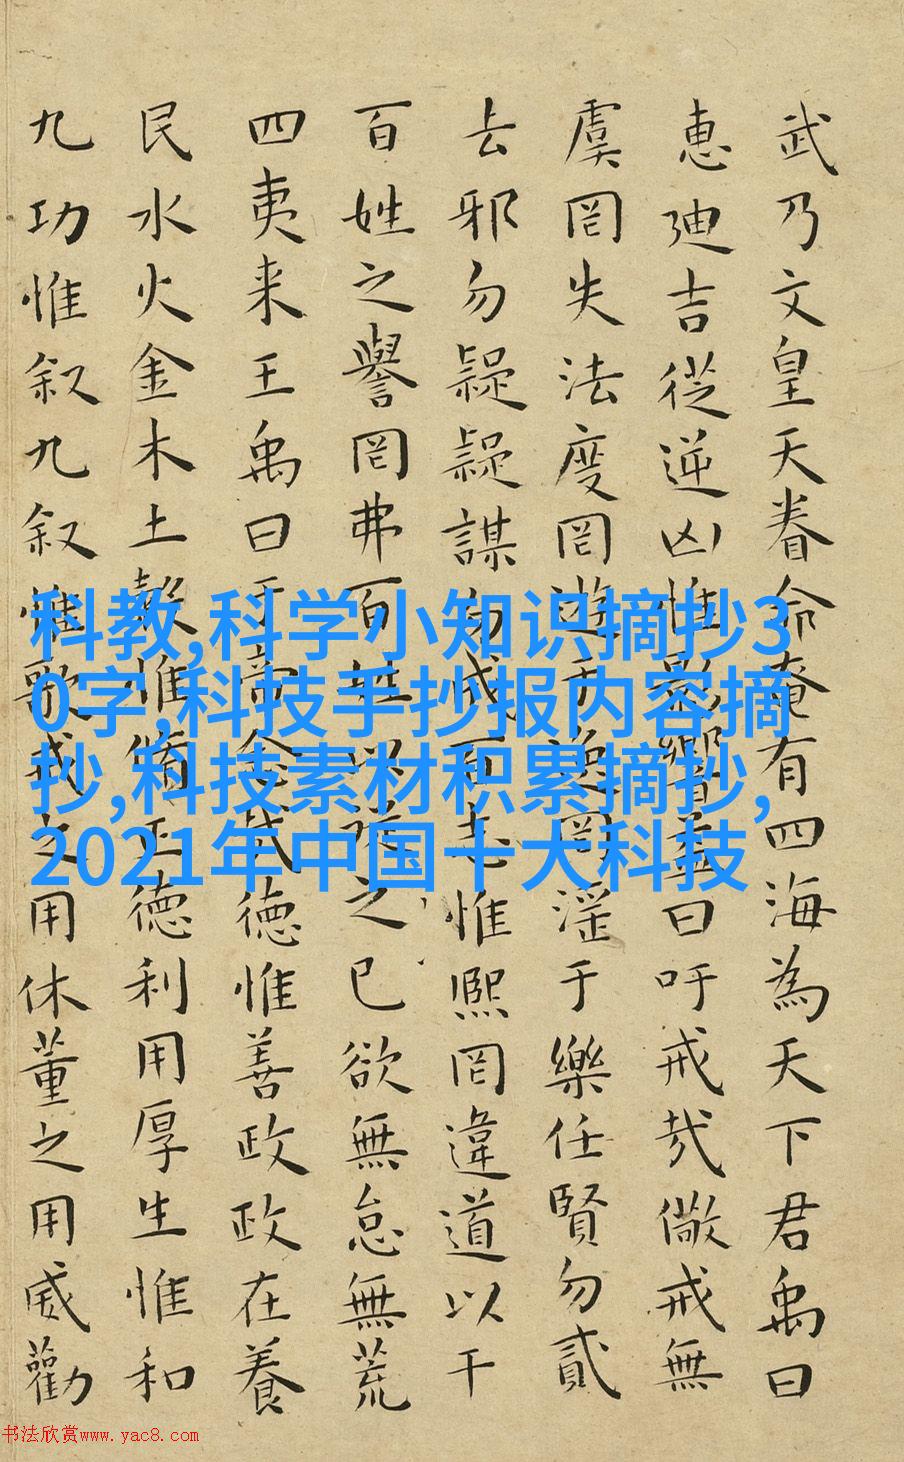 武乃文皇天眷命奄有四海為天下君禹曰
惠迪吉從逆凶惟影響益曰吁戒哉儆戒無
虞罔失法度罔遊于逸罔淫于樂任賢勿貳
去邪勿疑疑謀勿成百志惟熙罔違道以干
百姓之譽罔弗百姓以從之己欲無怠無荒
四夷来王禹曰于帝念哉德惟善政政在養
民水火金木土穀惟脩正德利用厚生惟和
九功惟叙九叙惟歌戒之用休董之用威勸
科教,科学小知识摘抄3
0字,科技手抄报内容摘
抄,科技素材积累摘抄,
2021年中国十大科技
书法欣赏www.yac8.com